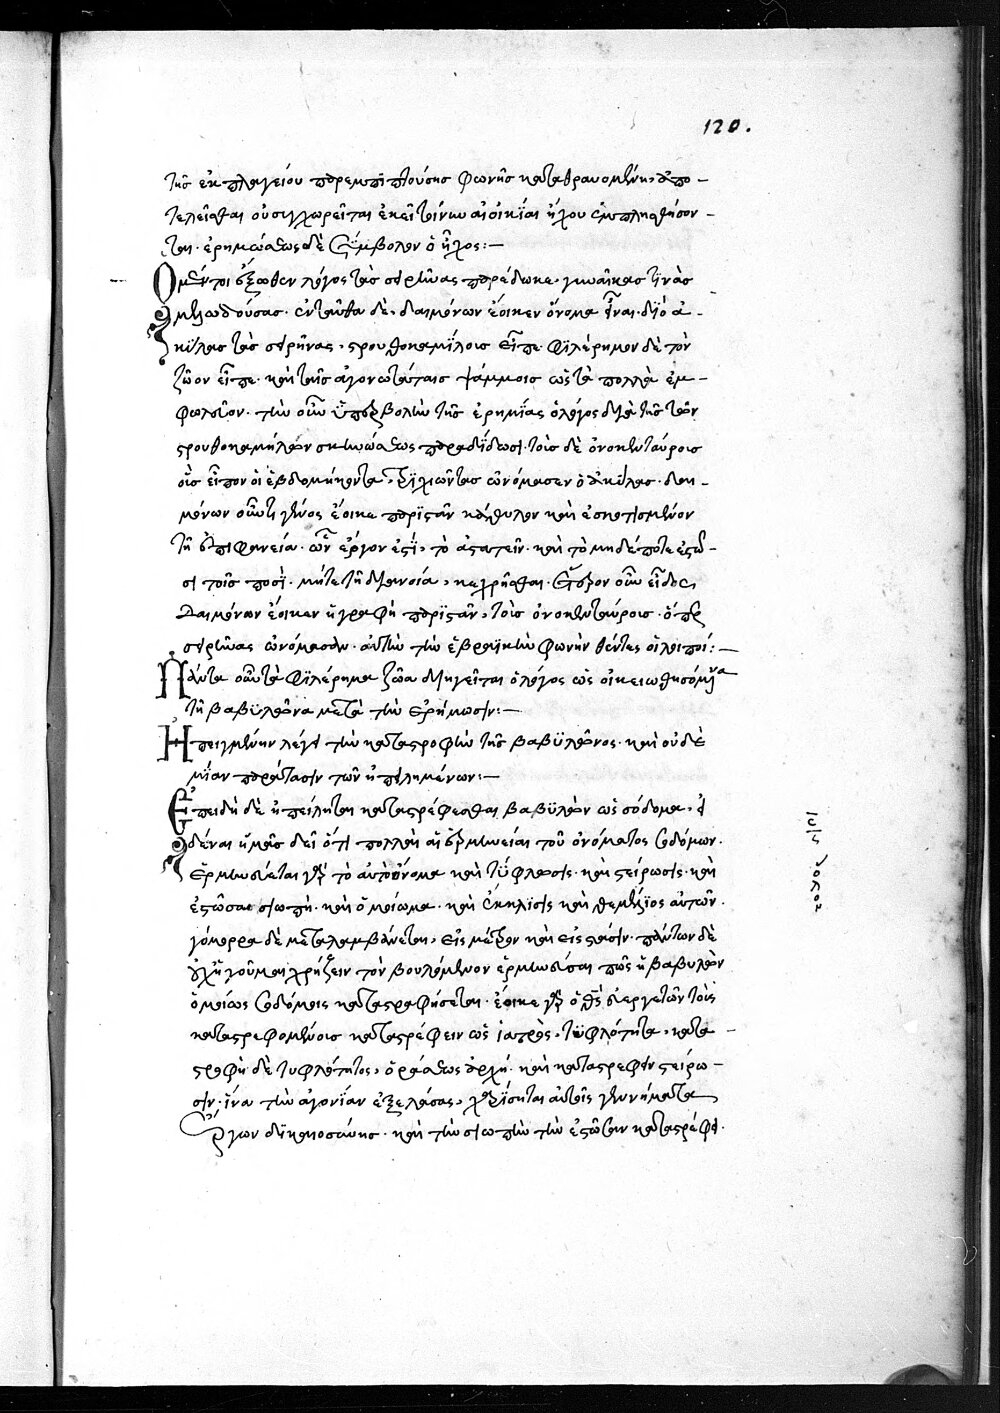 120.
τῆς ἐκ πλαγείου παρεμπιπτούσης φωνῆς καταθραυομένης, ἀπο-
τελεῖσθαι οὐ συγχωρεῖται ἐκεῖ τοίνυν αἱ οἰκίαι ἤχου ἐμπλησθήσον-
ται. ἐρημώσεως δὲ σύμβολον ὁ ἦχος:-
Ὁ μέντοι ἔξωθεν λόγος τὰς σειρῆνας παρέδωκε, γυναῖκας τινὰς
μελῳδούσας. ἐνταῦθα δὲ, δαιμόνων ἔοικεν ὄνομα εἶναι. διὸ ἀ-
κύλας τὰς σειρῆνας, στρουθοκαμήλους εἶπε. φιλέρημον δὲ τὸν
ζῶον εἶπε. καὶ ταῖς ἀγονωτάταις ψάμμοις ὡς τὰ πολλὰ ἐμ-
φωλεῦον. τὴν οὖν ὑπερβολὴν τῆς ἐρημίας ὁ λόγος διὰ τῆς τῶν
στρουθοκαμήλων σκηνώσεως παραδίδωσι. τοῖς δὲ ὀνοκενταύροις
οἷς εἶπον οἱ ἑβδομήκοντα, τριχιῶντας ὠνόμασεν ὁ ἀκύλας. δαι-
μόνων οὖν τι γένος ἔοικε παριστᾶν κάθυλον καὶ ἐσκοτισμένον
τῇ ἐπιφανείᾳ. ὧν ἔργον ἐστὶ, τὸ ἀτακτεῖν. καὶ τὸ μηδέποτε
τοῖς ποσὶ. μήτε τῇ διανοίᾳ, κεχρῆσθαι. ἕτερον οὖν εἶδος
δαιμόνων ἔοικεν ἡ γραφὴ παριστᾶν, τοῖς ὀνοκενταύροις. ὅπερ
σειρῆνας ὠνόμασαν. αὐτὴν τὴν ἑβραϊκὴν φωνὴν θέντες οἱ λοιποί:-
Πάντα οὖν τὰ φιλέρημα ζῶα διηγεῖται ὁ λόγος ὡς οἰκειωθησόμενα
τῇ βαβυλῶνα μετὰ τὴν ἐρήμωσιν:-
Ἠπειγμένην λέγει τὴν καταστροφὴν τῆς βαβυλῶνος. καὶ οὐδὲ
μίαν παράτασιν τῶν ἠπειλημένων:-
Ἐπειδὴ δὲ ἠπείληται καταστρέφεσθαι βαβυλὼν ὡς σόδομα, εἰ
δέναι ἡμᾶς δεῖ ὅτι πολλαὶ αἱ ἑρμηνεῖαι τοῦ ὀνόματος σοδόμων.
ἑρμηνεύεται γὰρ τὸ αὐτὸ ὄνομα καὶ τύφλωσις. καὶ στείρωσις. καὶ
ἐστῶσα σιωπή. καὶ ὁμοίωμα. καὶ ἔκκλισις καὶ θεμέλιος αὐτῶν.
γόμορρα δὲ μεταλαμβάνεται, εἰς μέτρον καὶ εἰς στάσιν. πάντων δὲ
εὐχῇ γοῦμαι χρῄζειν τὸν βουλόμενον ἑρμηνεῦσαι πῶς ἡ βαβυλὼν
ὁμοίως σοδόμοις καταστραφήσεται. ἔοικε γὰρ ὁ θεὸς εὐεργετῶν τοὺς
καταστρεφομένους καταστρέφειν ὡς ἰατρὸς, τυφλότητα, κατα-
στροφὴ δὲ τυφλότητος, ὁράσεως ἀρχή. καὶ καταστρέφειν στείρω-
σιν. ἵνα τὴν ἀγονίαν ἐξελάσας, χαρίσηται αὐτοῖς γεννήματα
ἔργων δικαιοσύνης. καὶ τὴν σιωπὴν τὴν ἐστῶσαν καταστρέφει.